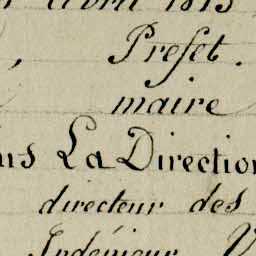 avril 1813
, Prefet.
maire
ns La Direction
directeur des
Ingénieur V